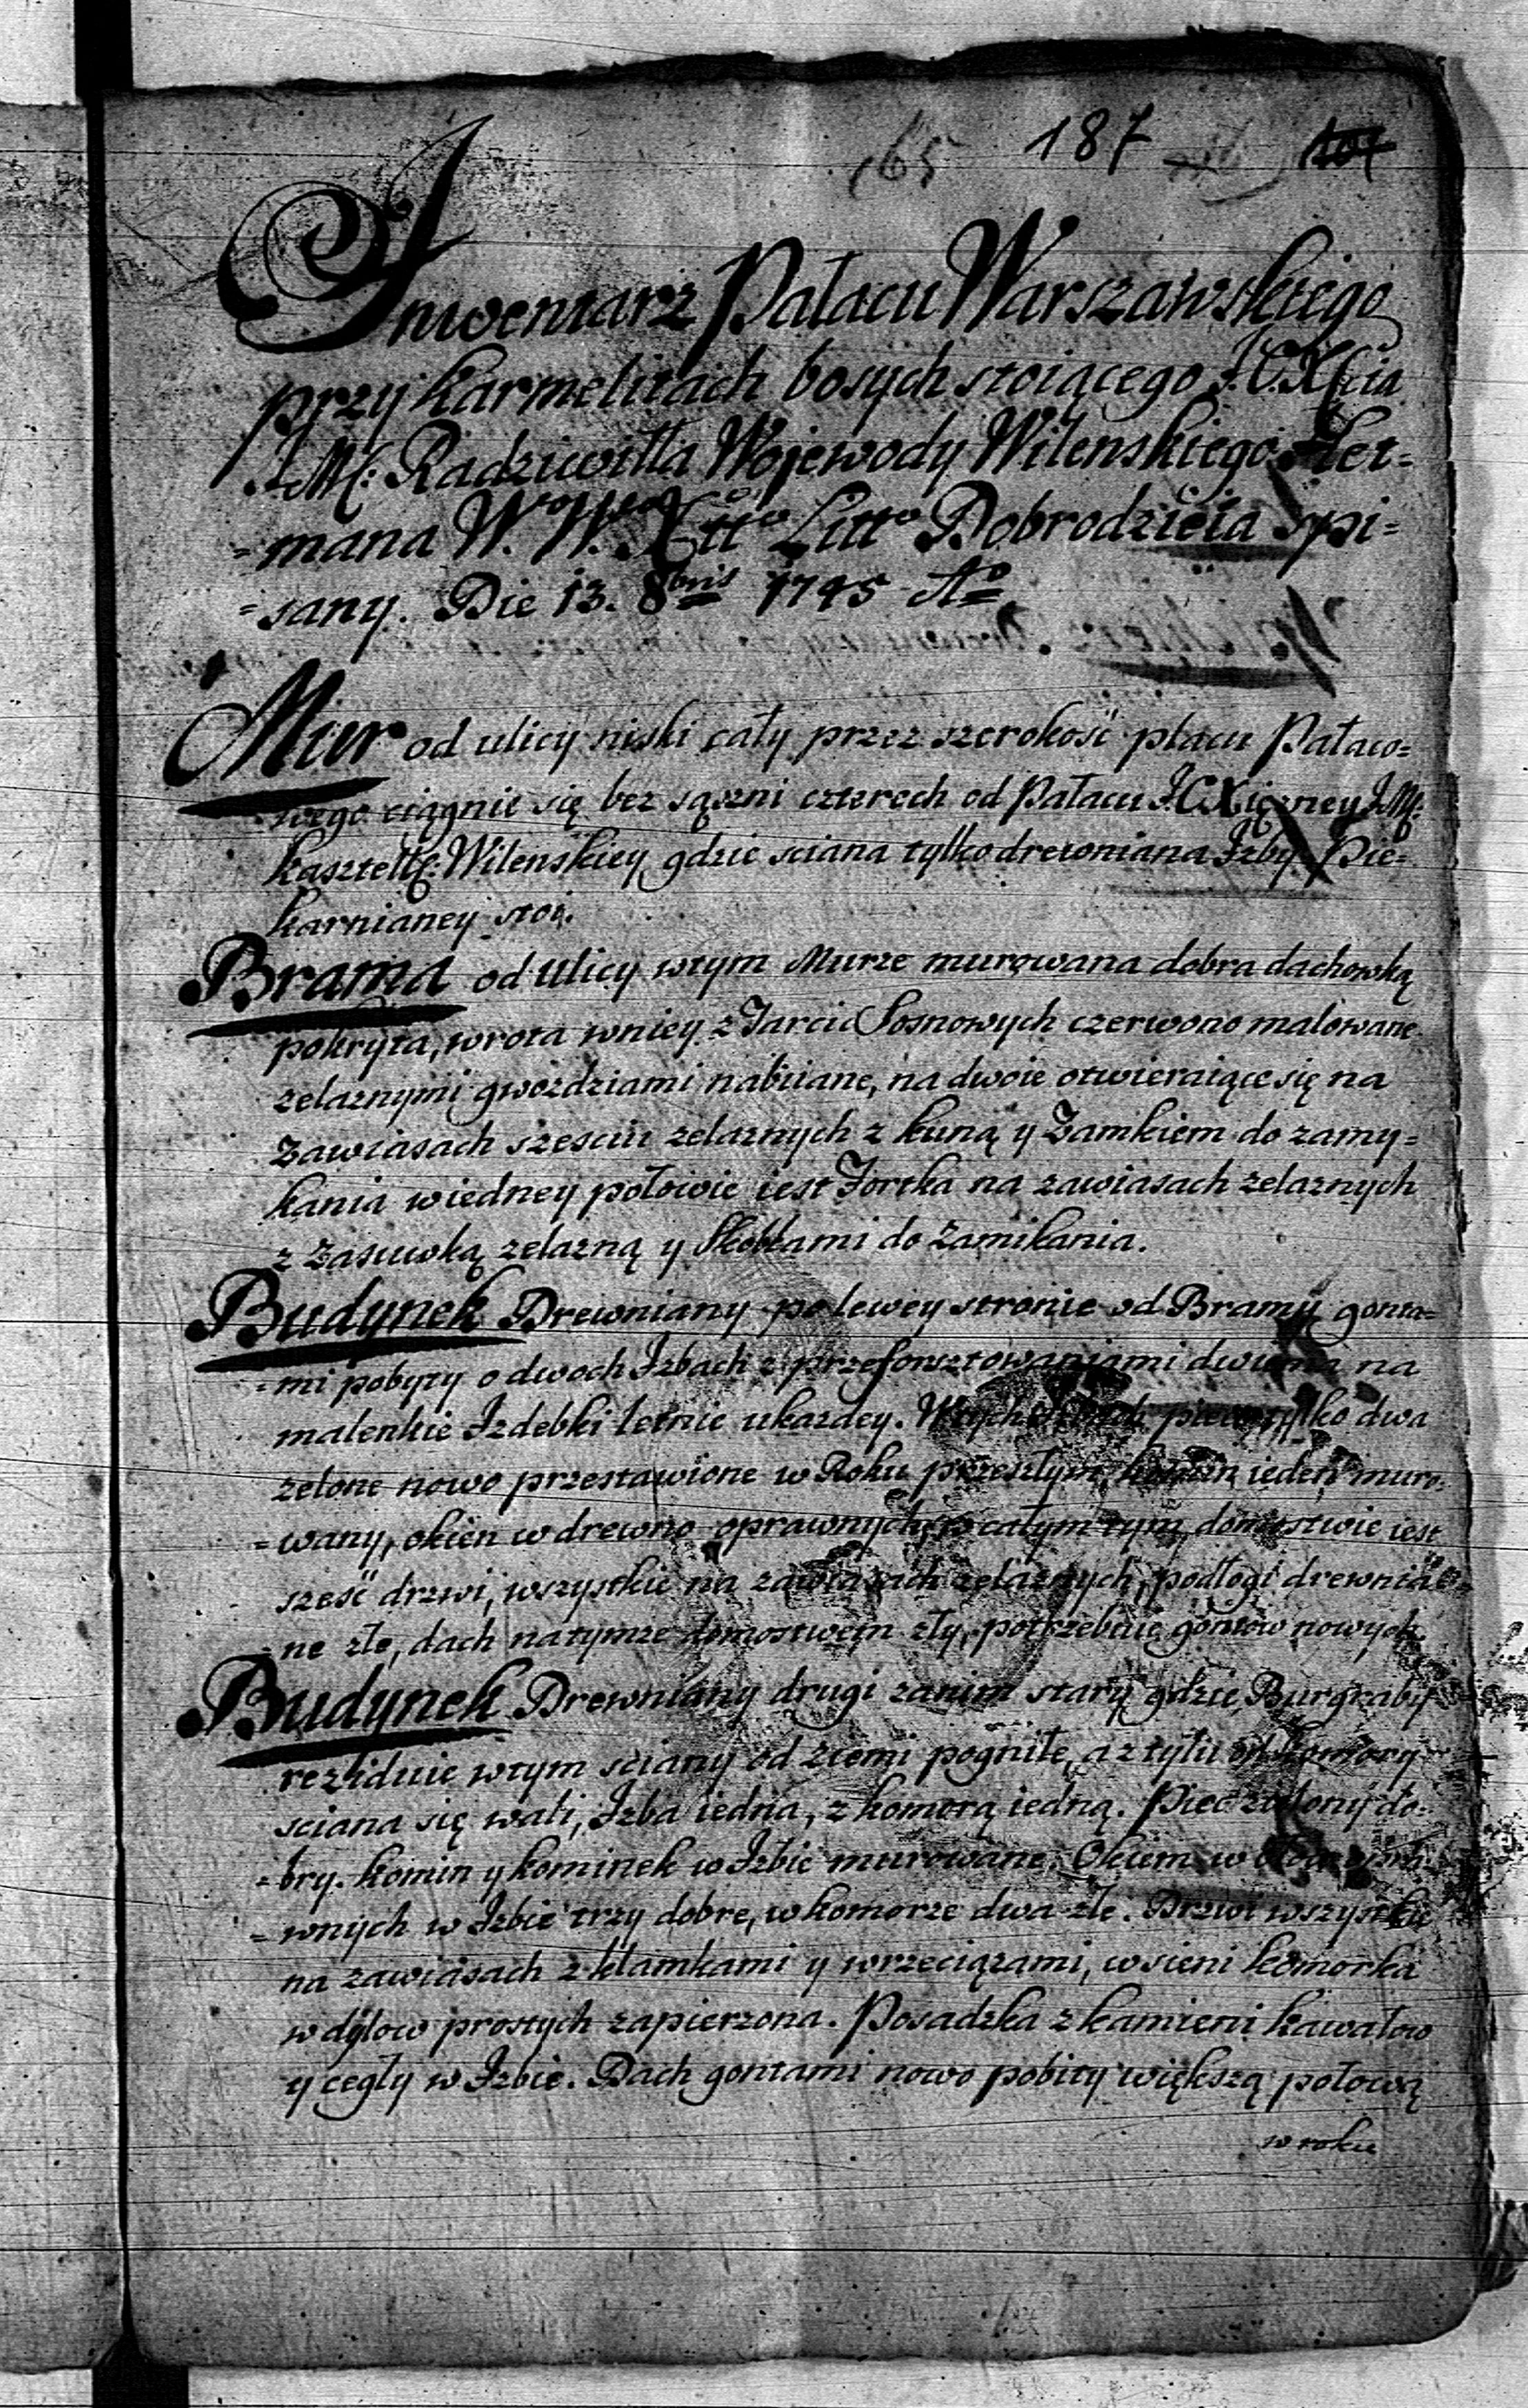 165 187
Inwentarz Pałacu Warszawskiego
przy karmelitach bosych stoiącego J.O.Xcia
J.M: Radziwiłła Wojewody Wilenskiego Het=
=mana W. W. Xttᵒ Littᵒ Dobrodzieia spi=
=sany. Die 13. 8bris 1745 Aᵒ
Mur od ulicy niski cały przez szerokość placu Pałaco=
=wego ciągnie się bez sążni czterech od Pałacu J.O.Xiężney J.M:
kasztell: Wilenskiey gdzie sciana tylko drewniana Izby Pie=
karnianey stoi.
Brama od Ulicy wtym Murze murowana dobra dachowką
pokryta, wrota wniey z Tarcic Sosnowych czerwono malowane
zelaznymi gwozdziami nabiiane, na dwoie otwieraiące się na
Zawiasach szesciu zelaznych z kuną y Zamkiem do zamy=
kania wiedney połowie iest Fortka na zawiasach zelaznych
z Zasuwką zelazną y Skoblami do Zamikania.
Budynek Drewniany po lewey stronie od Bramy gonta=
=mi pobyty o dwoch Izbach z przeforsztowaniami dwiema na
malenkie Izdebki letnie ukazdey. Wtych piece tylko dwa
zelone nowo przestawione w Roku przeszłym, komin ieden muro=
=wany, okien w drewno oprawnych w całym tym domostwie iest
sześć drzwi, wszystkie na zawiasach zelaznych, podłogi drewnia=
=ne złe, dach natymze domostwem zły, potrzebuie gontow nowych.
Budynek Drewniany drugi zanim stary gdzie Burgraby
reziduie wtym sciany od ziemi pogniłe, a z tyłu od komory
sciana się wali, Izba iedna, z komorą iedną. Piec zielony do=
=bry. komin y kominek w Izbie murowane. Okiem w
=wnych w Izbie trzy dobre, w komorze dwa złe. Drzwi wszystkie
na zawiasach z klamkami y wrzeciązami, w sieni komorka
w dylow prostych zapierzona. Posadzka z kamieni kawałow
y cegły w Izbie. Dach gontami nowo pobity większą połową
w roku